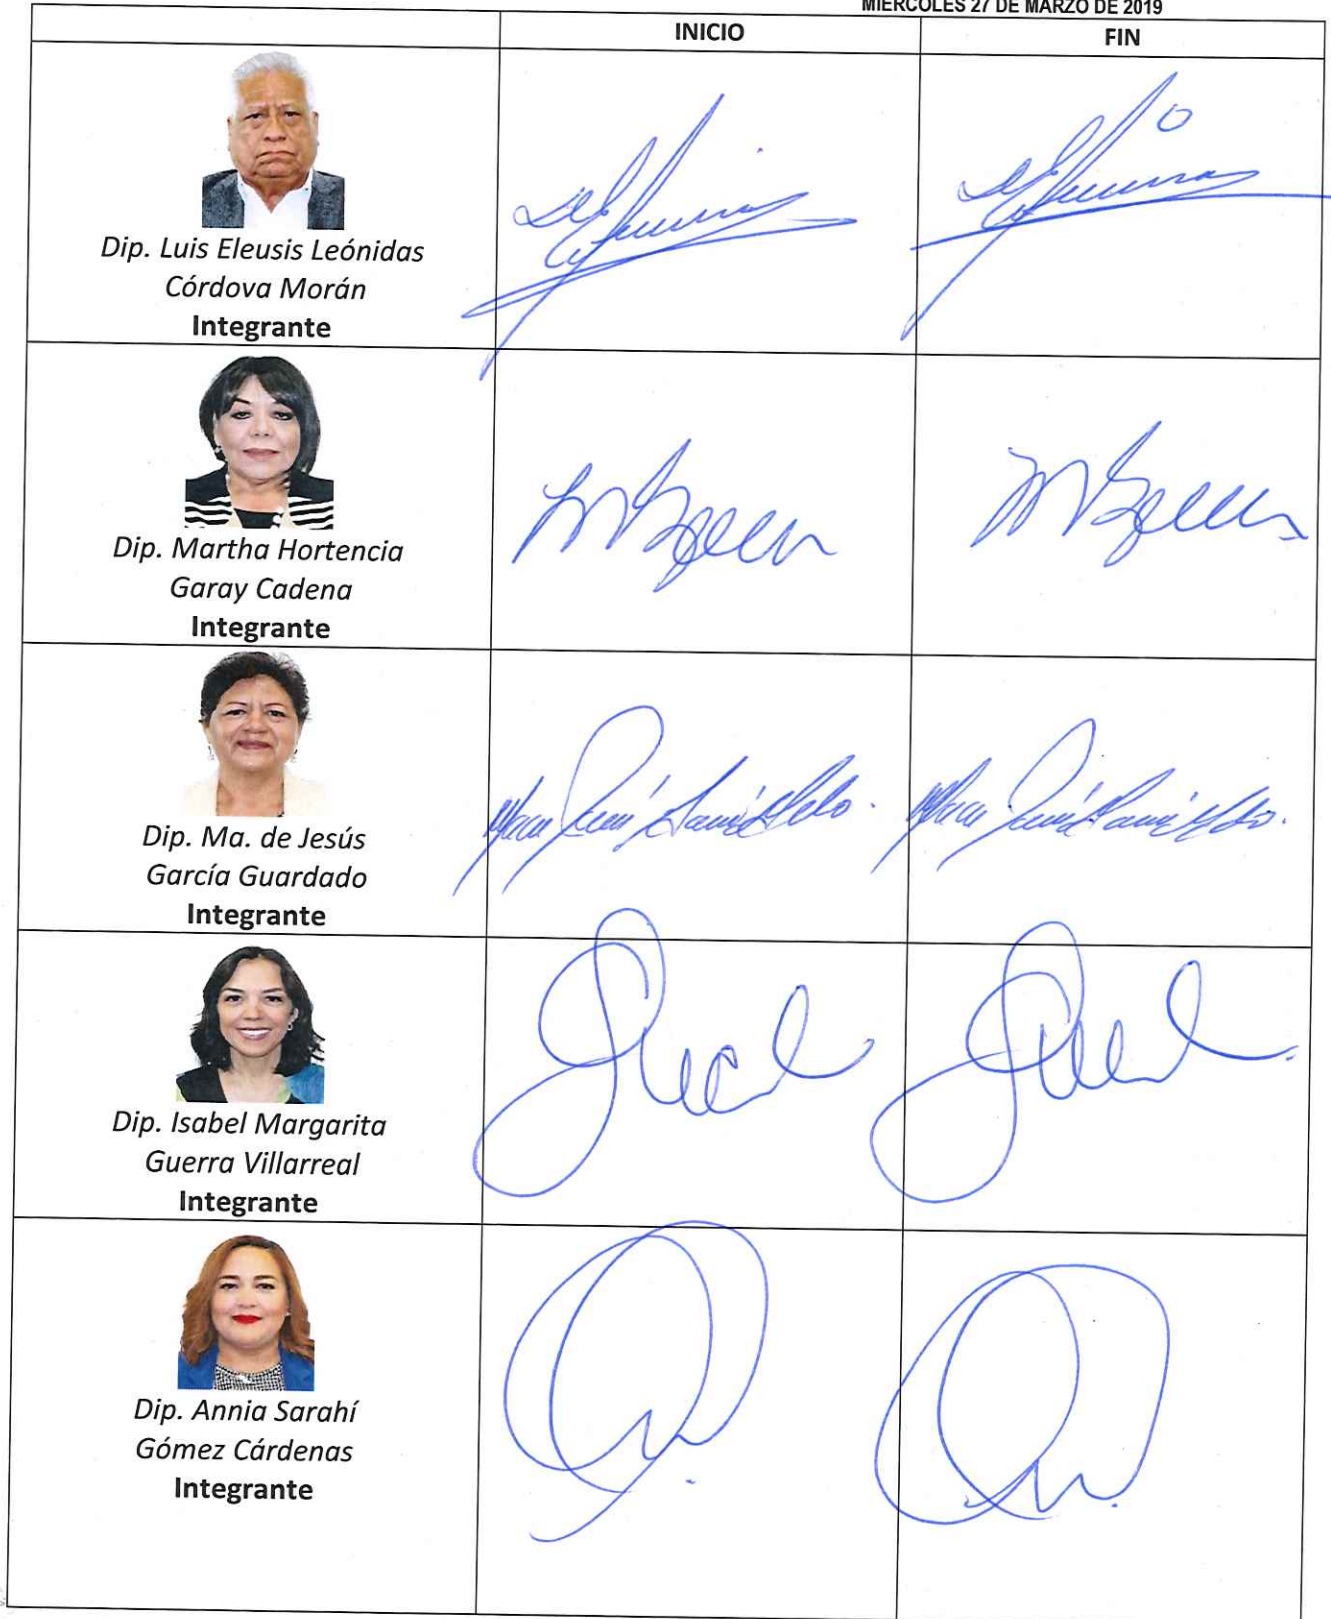 MIÉRCOLES 27 DE MARZO DE 2019
INICIO
FIN
Dip. Luis Eleusis Leónidas
Córdova Morán
Integrante
Dip. Martha Hortencia
Garay Cadena
Integrante
Dip. Ma. de Jesús
García Guardado
Integrante
Dip. Isabel Margarita
Guerra Villarreal
Integrante
Dip. Annia Sarahí
Gómez Cárdenas
Integrante